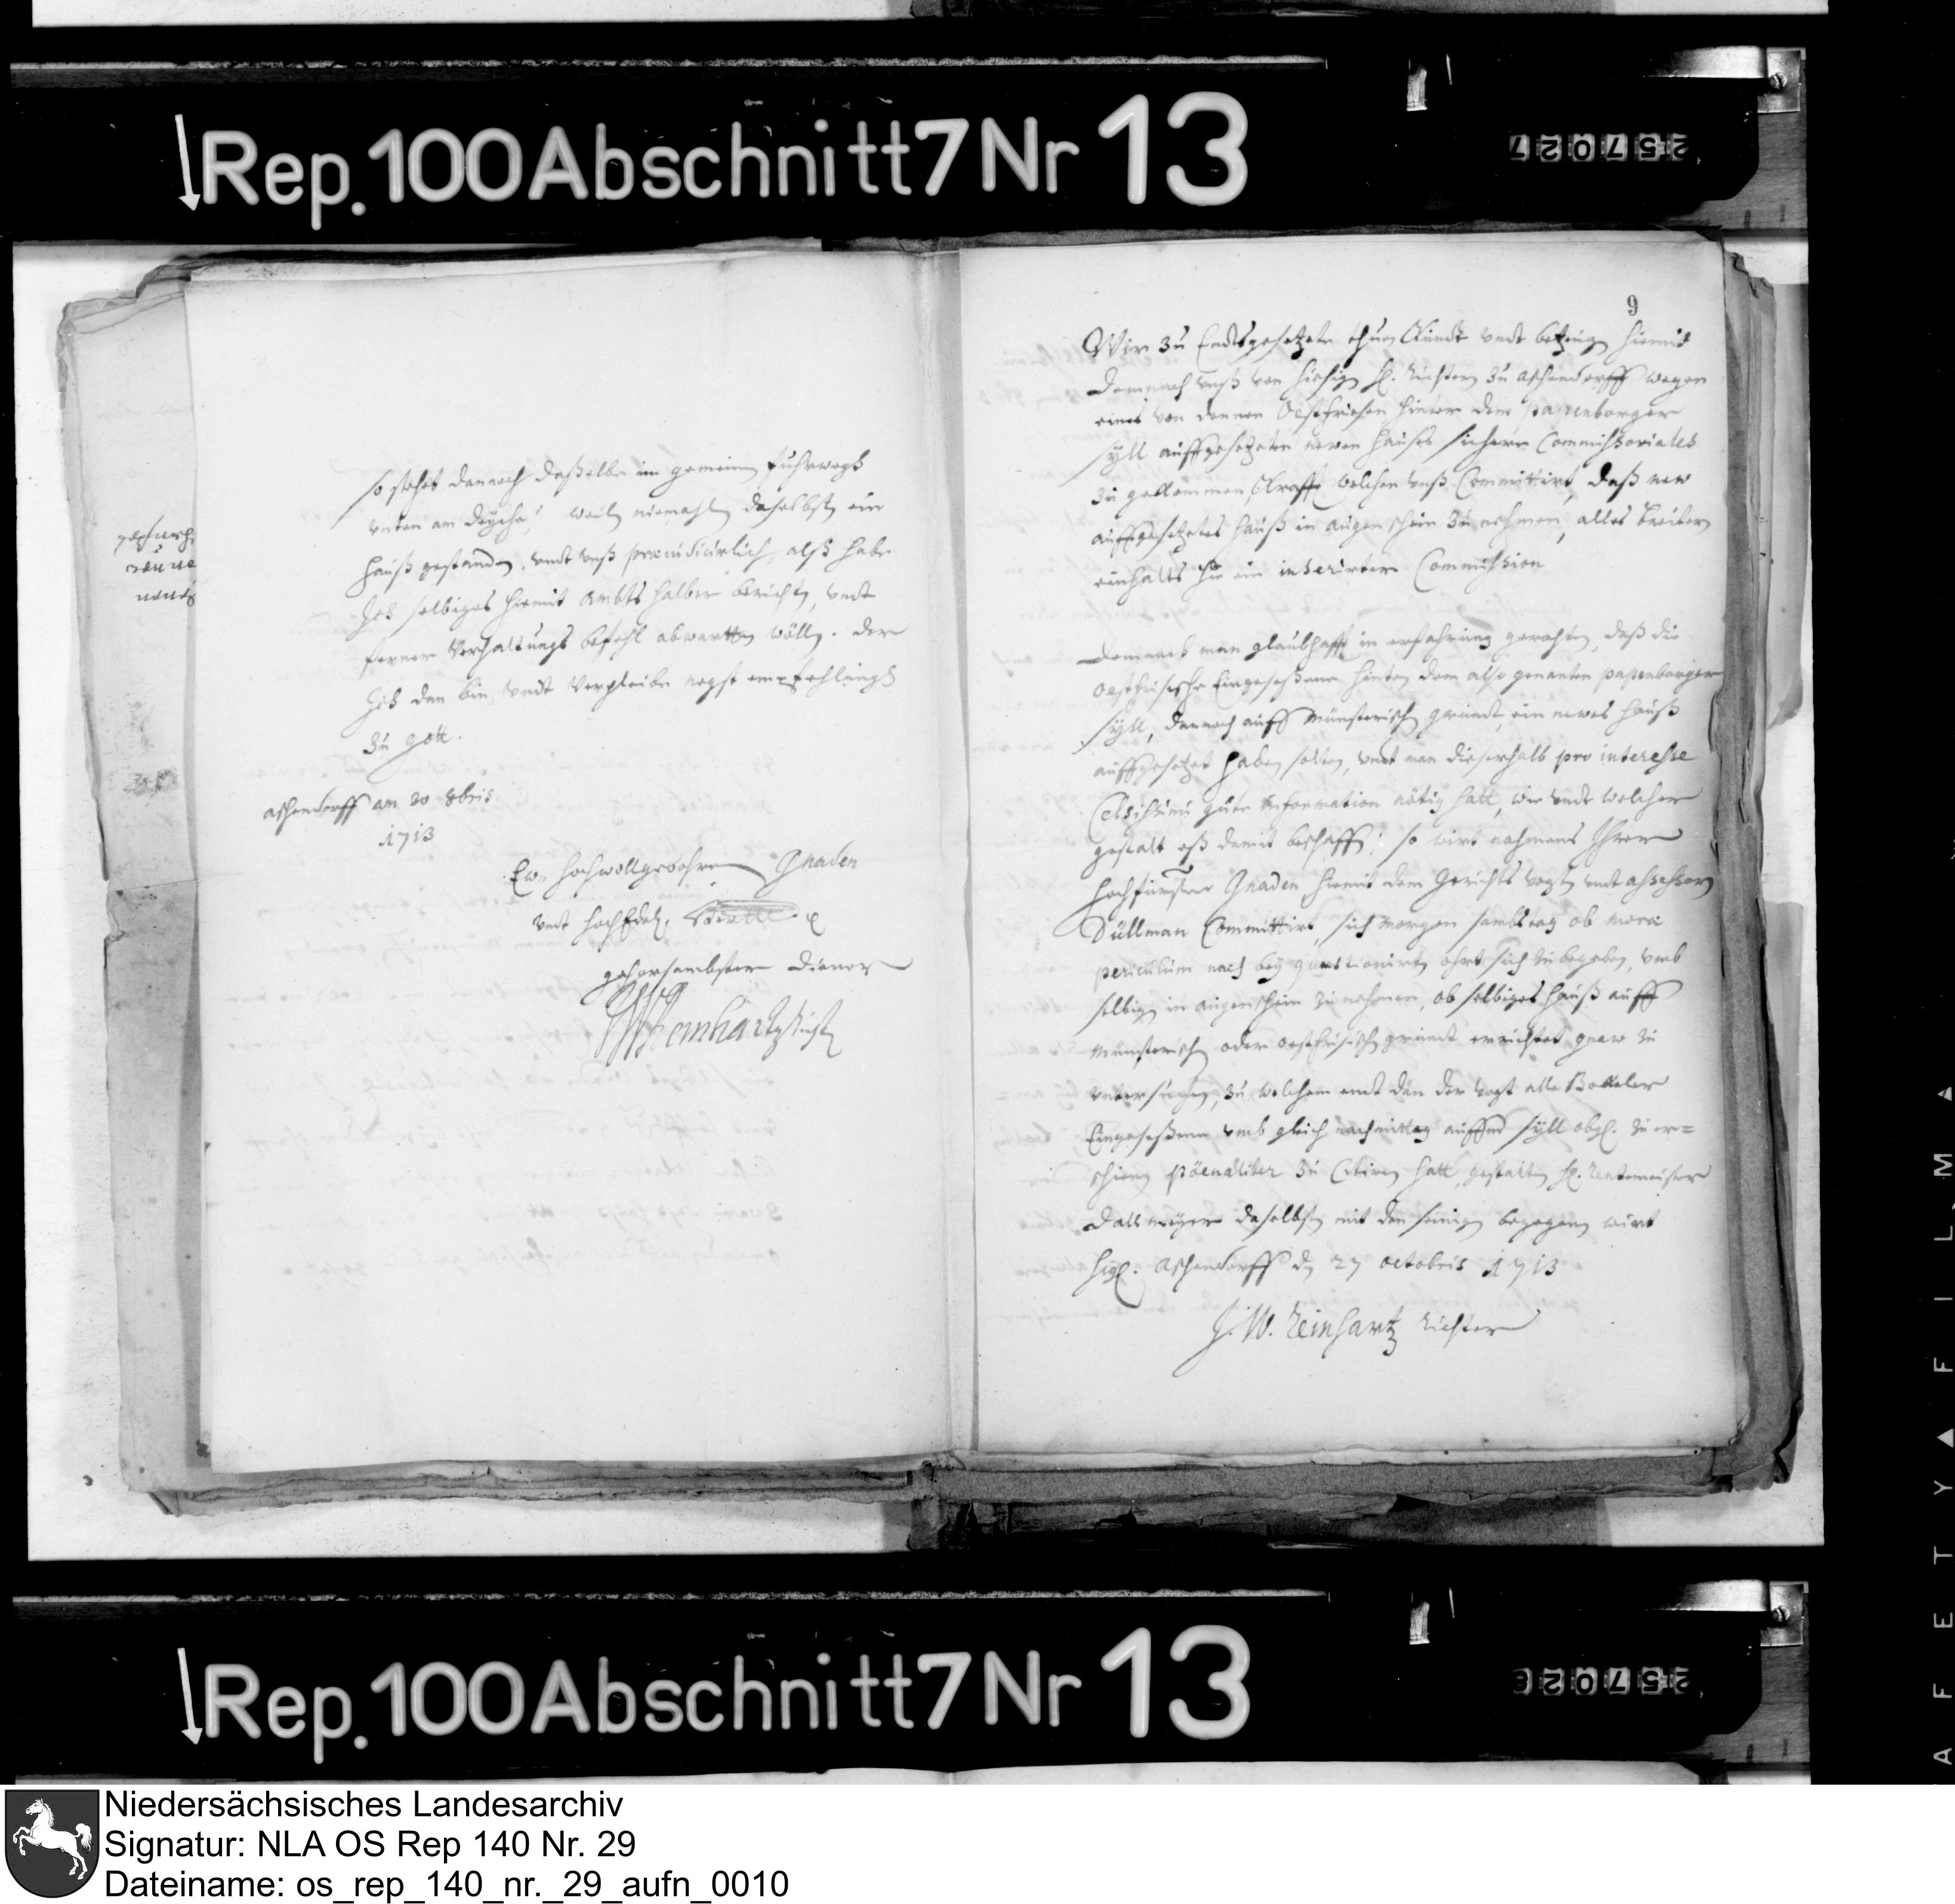 Rep. 100 Abschnitt 7 Nr 13
257027
so stehet dannoch daßelbe im gemeinen fuhrwegh
unten am deyche, weilen niemahlen daselbsten ein
hauß gestanden, undt unß præiudicirlich, alß habe
Ich selbiges hiemit Ambts halber berichten, undt
ferner Verhaltungs befehl abwartten wöllen. der
Ich dan bin undt Verpleibe negst empfehlungh
zu gott.
aschendorff am 20 8bris
1713
Ew. hochwollgebohrne Gnaden
undt hochEdel.
gehorsambster diener
Reinhartz Richter
9
Wir zu Endtsgesetzte thuen Kundt undt betzeugen hiemit
demnach unß von hiesigen H. Richtern zu aschendorff wegen
eines von denen Ostfriesen hinter dem papenborger
syll auffgesetzten newen haußes sichere Commissoriales
zu gekommen Krafft welcher unß Committirt, daß new
auffgesetztes hauß in augenschein zu nehmen, alles breitern
einhalts hie ein inserirter Commission
Demnach man glaubhafft in erfahrung gerathen, daß die
ostfrisische Eingeseßene hinter dem also genanten papenborger
syll, dannoch auff Münsterischen grundt, ein newes hauß
auffgesetzet haben solten, undt man dieserhalb pro interesse
Celsissimi gute information nötig hatt, wie undt welcher
gestalt eß damit beschaffen; so wirt nahmens Ihrer
hochfürster Gnaden hiemit dem Gerichts vogten undt assessoren
Düllman Committirt, sich morgen sambstag ob mora
periculum nach bey questionirten ohrt sich zu begeben, umb
selbigen in augenschein zu nehmen, ob selbiges hauß auff
Münsterischen oder ostfrisischen grundt errichtet, genaw zu
untersuchen, zu welchem endt dan der vogt alle Bokeler
Eingeseßene umb gleich nachmittag auffm syll obgl. zu er=
schienen pöenaliter zu Citiren hatt, gestalten H. Rentemeister
Dallmeyer daselbsten mit den seinigen begegnen wirt
Sigl. Aschendorff den 27 octobris 1713
J. W. Reinhartz Richter
Rep. 100 Abschnitt 7 Nr 13
SAFETY FILM
Niedersächsisches Landesarchiv
Signatur: NLA OS Rep 140 Nr. 29
Dateiname: os_rep_140_nr._29_aufn_0010